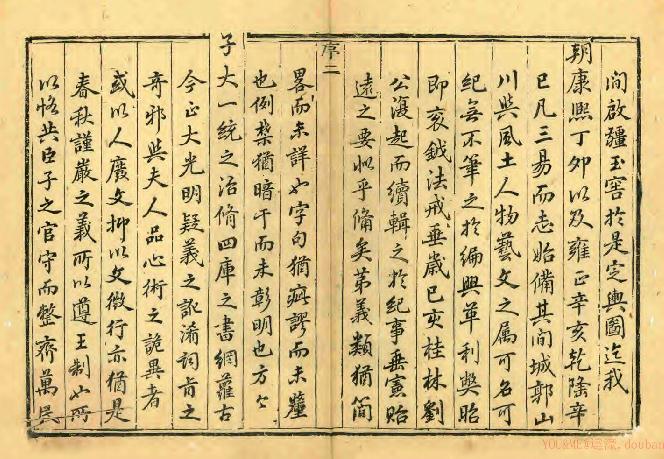 間啟疆玉窖於是定輿圖迄我
朝康熙丁夘以及雍正辛亥乾隆辛
巳凡三易而志始備其間城郭山
川與風土人物藝文之属可名可
紀無不筆之於編興革利獘昭
即衮鉞法戒垂歲已亥桂林劉
公復起而續輯之於紀事垂憲貽
遠之要似乎備矣第義類猶簡
序二
畧而未詳也字句猶疵謬而未釐
也例槩猶暗汙而未彰明也方今
子大一統之治脩四庫之書網羅古
今正大光明疑義之訛淆詞旨之
奇邪與夫人品心術之詭異者
或以人廣文抑以文徵行亦猶是
春秋謹嚴之義所以遵王制也所
以恪共臣子之官守而整齊萬民
YOU&ME@ .douban